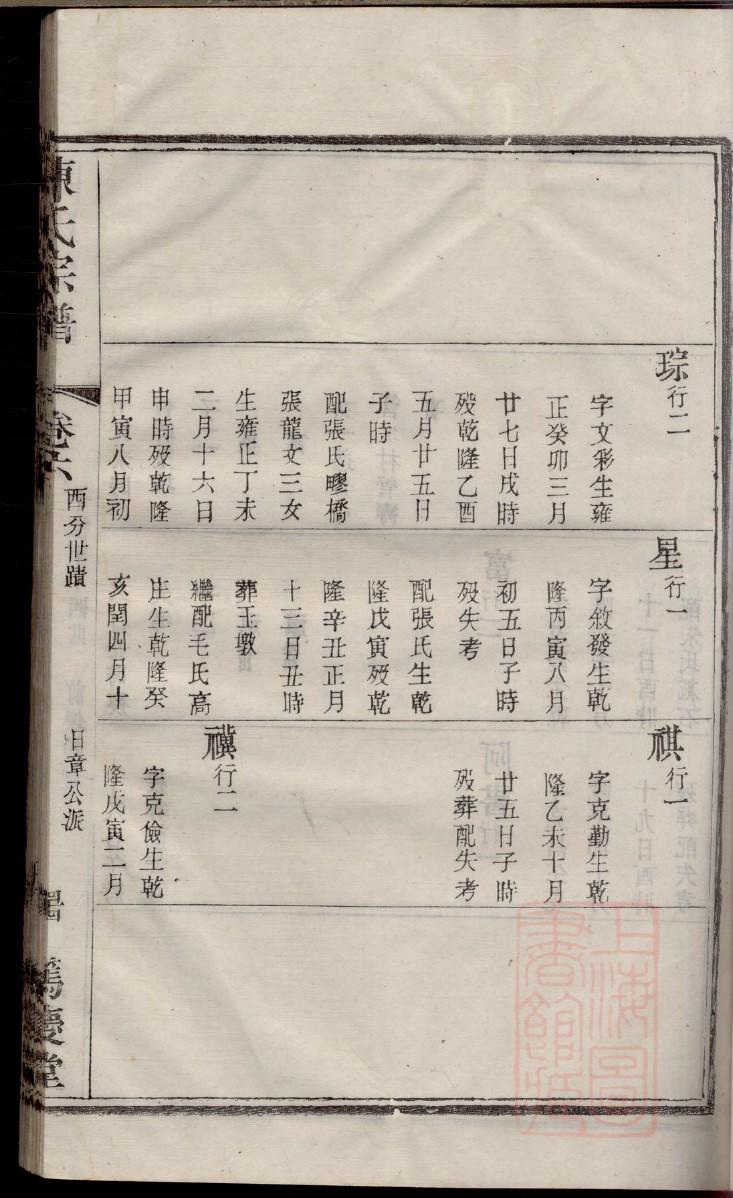 琮行二
字文彩生雍
正癸卯三月
廿七日戌時
歿乾隆乙酉
五月廿五日
子時
配張氏膠橋
張龍文三女
生雍正丁未
二月十六日
申時歿乾隆
甲寅八月初
星行一
字敘發生乾
隆丙寅八月
初五日子時
歿失考
配張氏生乾
隆戊寅歿乾
隆辛丑正月
十三日丑時
葬王墩
繼配毛氏高
庄生乾隆癸
亥閏四月十
祺行一
字克勤生乾
隆乙未十月
廿五日子時
歿葬配失考
行二
字克儉生乾
隆戊寅二月
陳氏宗譜
卷六
酉分世蹟
旧章公派
篤慶堂
上海圖書館藏